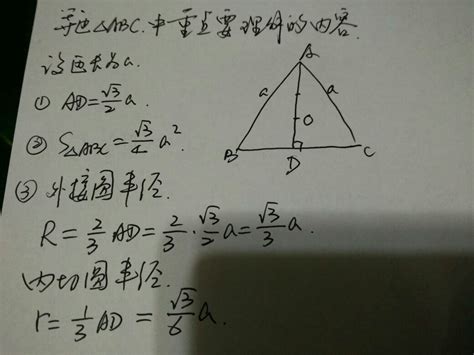 等边△ABC中重点要理解的内容.
设边长为a.
① AD=√3/2 a.
② S△ABC=√3/4 a².
③ 外接圆半径.
R=2/3 AD=2/3·√3/2 a=√3/3 a.
内切圆半径.
r=1/3 AD=√3/6 a.
A
a
a
O
B
D
C